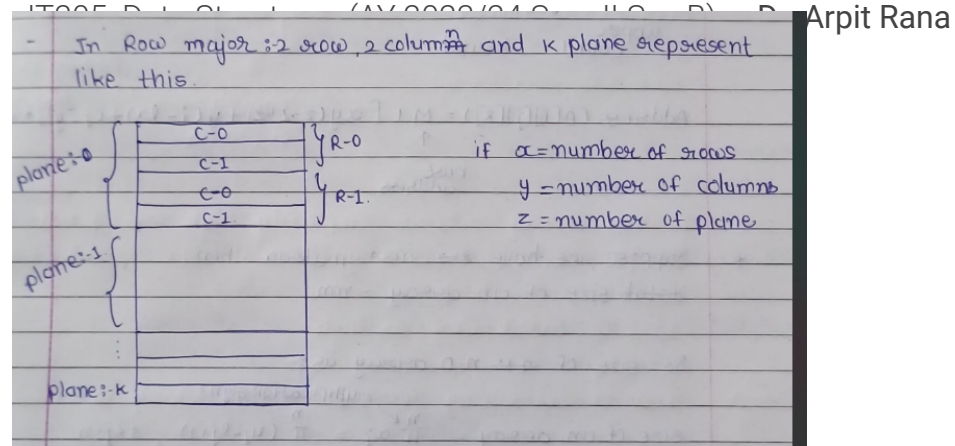 Arpit Rana
- In Row major :-2 row, 2 column and K plane represent
like this.
plane:-0
C-0
C-1
R-0
C-0
C-1
R-1.
if x = number of rows
y = number of columns
z = number of plane
plane:-1
⋮
plane:-K